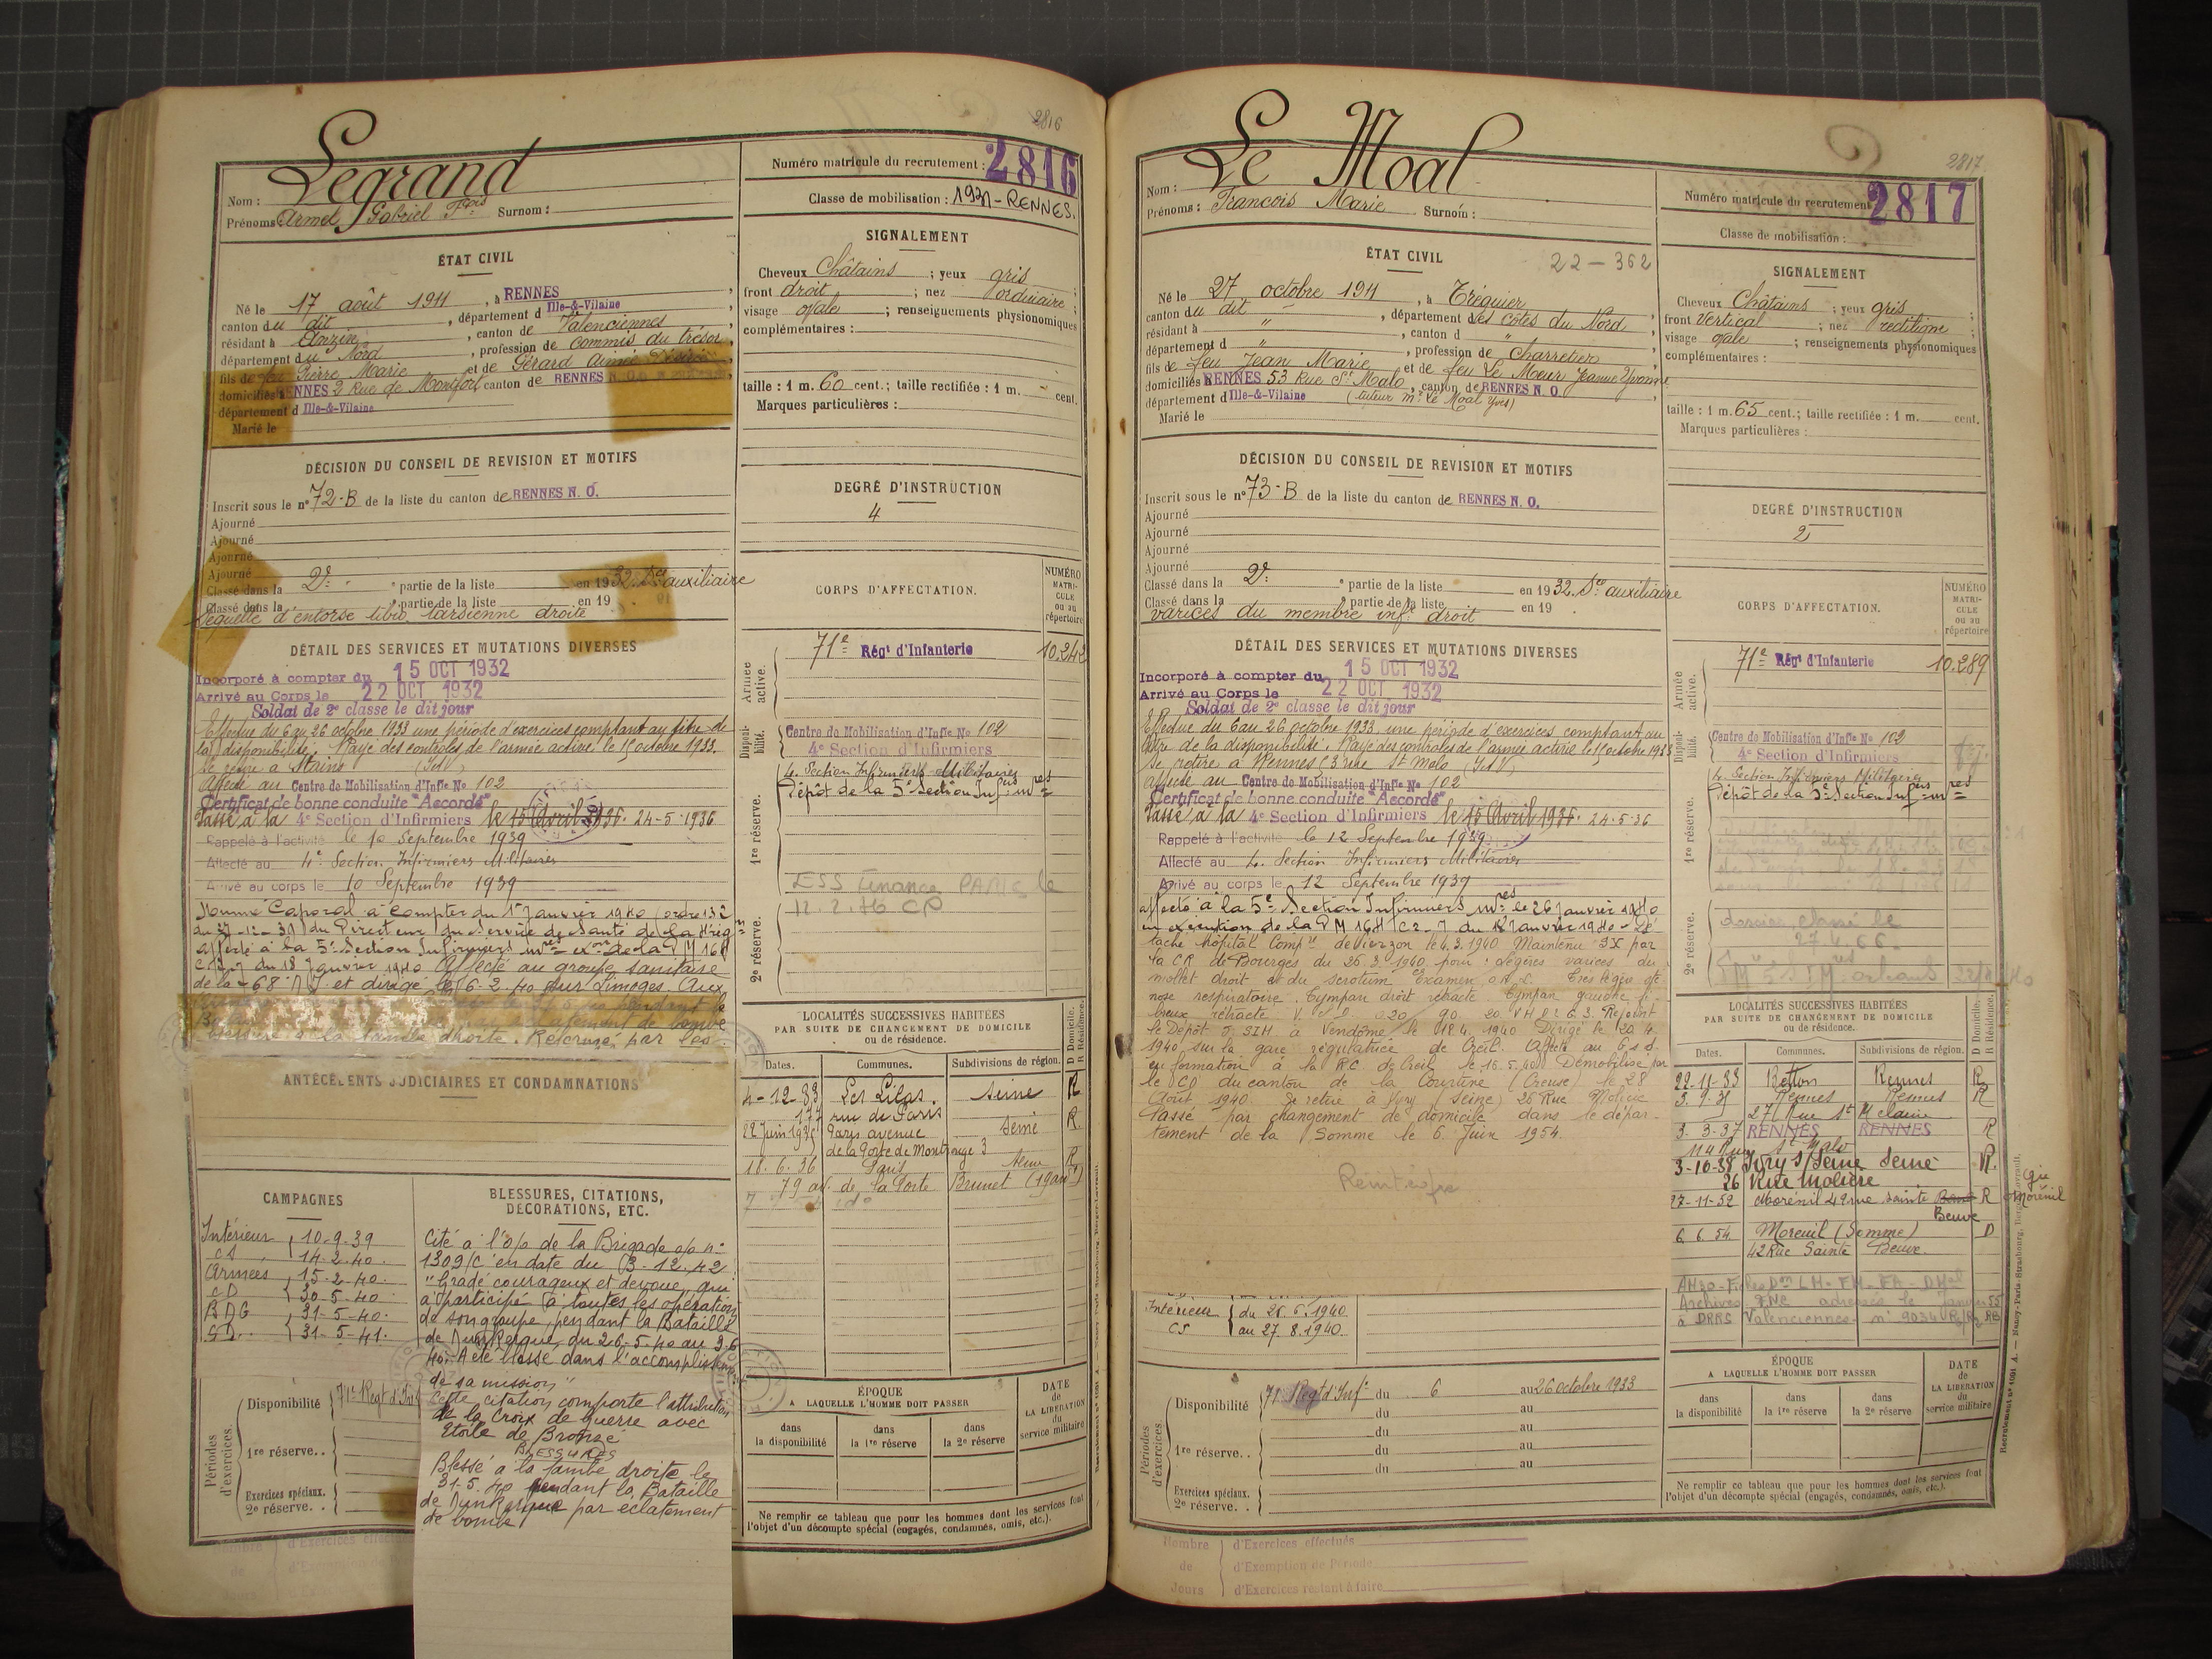 2816
Legrand
Nom :
Prénoms : Armel Gabriel Fçois Surnom :
Numéro matricule du recrutement : 2816
Classe de mobilisation : 1931 - RENNES.
ÉTAT CIVIL
Né le 17 août 1911, à RENNES
canton du dit, département d Ille-&-Vilaine
résidant à Anzin, canton de Valenciennes
département du Nord, profession de Commis du trésor
fils de feu Pierre Marie et de Gérard Aimée Désirée
domiciliés à RENNES 2 Rue de Montfort canton de RENNES N. O.
département d Ille-&-Vilaine
Marié le
SIGNALEMENT
Cheveux Châtains ; yeux gris ;
front droit ; nez ordinaire ;
visage ovale ; renseignements physionomiques
complémentaires :
taille : 1 m. 60 cent. ; taille rectifiée : 1 m. - cent.
Marques particulières :
DÉCISION DU CONSEIL DE REVISION ET MOTIFS
Inscrit sous le n° 72-B de la liste du canton de RENNES N. O.
Ajourné
Ajourné
Ajourné
Ajourné
Classé dans la 2e partie de la liste en 1932. Sce auxiliaire
Classé dans la partie de la liste en 19
Séquelle d'entorse tibio tarsienne droite
DEGRÉ D'INSTRUCTION
4
CORPS D'AFFECTATION.
NUMÉRO MATRI-CULE ou au répertoire
Armée active.
71e Régt d'Infanterie 10.242
Disponi-bilité.
Centre de Mobilisation d'Infie No 102
4e Section d'Infirmiers
1re réserve.
4. Section Infirmiers Militaires
Dépôt de la 5e Section Infiers mres
ESS Finances PARIS le
2e réserve.
12.2.46 CP
DÉTAIL DES SERVICES ET MUTATIONS DIVERSES
Incorporé à compter du 15 OCT 1932
Arrivé au Corps le 22 OCT 1932
Soldat de 2e classe le dit jour
Effectue du 6 au 26 octobre 1933 une période d'exercices comptant au titre de
la disponibilité. Rayé des contrôles de l'armée active le 15 octobre 1933.
Se retire à Stains (I et V)
Affecté au Centre de Mobilisation d'Infie No 102
Certificat de bonne conduite "Accordé"
Passé à la 4e Section d'Infirmiers le 15 Avril 1936. 24-5-1936
Rappelé à l'activité le 10 Septembre 1939
Affecté au 4e Section Infirmiers Militaires
Arrivé au corps le 10 Septembre 1939
Nommé Caporal à compter du 1er Janvier 1940 (ordre 132
du 27-12-39) du Directeur du Service de Santé de la 4e rég
affecté à la 5e Section Infirmiers mres exon de la DM 1641
C 2.7 du 18 Janvier 1940 Affecté au groupe sanitaire
de la 68 DI et dirigé le 6-2-40 sur Limoges. Aux
pendant la
éclatement de bombe
la jambe droite. Recensé par les
ANTÉCÉDENTS JUDICIAIRES ET CONDAMNATIONS
LOCALITÉS SUCCESSIVES HABITÉES
PAR SUITE DE CHANGEMENT DE DOMICILE
ou de résidence.
D Domicile. R Résidence.
Dates. Communes. Subdivisions de région.
4-12-33 Les Lilas. Seine R
177 rue de Paris
22 Juin 1935 Paris avenue Seine R.
de la Porte de Montrouge 3
18.6.36 Paris Seine R
79 av. de la Porte Brunet (19 arrt)
CAMPAGNES
Intérieur 10-9-39
CS 14-2-40.
Armées 15-2-40.
CD 30-5-40
BDG 31-5-40.
31-5-41.
BLESSURES, CITATIONS,
DÉCORATIONS, ETC.
Cité à l'o/o de la Brigade o/o n°
1309/C en date du 3-12-42
"Gradé courageux et dévoué, qui
a participé à toutes les opérations
de son groupe, pendant la Bataille
de Dunkerque, du 26-5-40 au 3-6
40. A été blessé dans l'accomplissement
de sa mission"
Cette citation comporte l'attribution
de la Croix de guerre avec
Etoile de Bronze
BLESSURES
Blessé à la jambe droite le
31-5-40 pendant la Bataille
de Dunkerque par éclatement
de bombe
Périodes d'exercices.
Disponibilité 71e Regt d'Inf
1re réserve. .
Exercices spéciaux.
2e réserve. .
Nombre de Jours
d'Exercices effectués
ÉPOQUE
A LAQUELLE L'HOMME DOIT PASSER
dans la disponibilité
dans la 1re réserve
dans la 2e réserve
DATE de LA LIBERATION du service militaire
Ne remplir ce tableau que pour les hommes dont les services font
l'objet d'un décompte spécial (engagés, condamnés, omis, etc.).
2817
Le Moal
Nom :
Prénoms : Francois Marie Surnom :
Numéro matricule du recrutement 2817
Classe de mobilisation :
ÉTAT CIVIL
22 - 362
Né le 27 octobre 1911, à Tréguier
canton du dit, département des côtes du Nord
résidant à ", canton d
département d ", profession de Charretier
fils de feu Jean Marie et de feu Le Meur Jeanne Yvonne
domiciliés à RENNES 53 Rue St Malo, canton de RENNES N. O.
département d Ille-&-Vilaine (tuteur Mr Le Moal Yves)
Marié le
SIGNALEMENT
Cheveux Châtains ; yeux gris ;
front vertical ; nez rectiligne ;
visage ovale ; renseignements physionomiques
complémentaires :
taille : 1 m. 65 cent. ; taille rectifiée : 1 m. cent.
Marques particulières :
DÉCISION DU CONSEIL DE REVISION ET MOTIFS
Inscrit sous le n° 73-B de la liste du canton de RENNES N. O.
Ajourné
Ajourné
Ajourné
Ajourné
Classé dans la 2e partie de la liste en 1932. Sce auxiliaire
Classé dans la partie de la liste en 19
varices du membre inf. droit
DEGRÉ D'INSTRUCTION
2
CORPS D'AFFECTATION.
NUMÉRO MATRI-CULE ou au répertoire
Armée active.
71e Régt d'Infanterie 10.289
Disponi-bilité.
Centre de Mobilisation d'Infie No 102
4e Section d'Infirmiers
1re réserve.
4. Section Infirmiers Militaires
Dépôt de la 5e Section Infiers mres
2e réserve.
dossier classé le
27.4.66
DÉTAIL DES SERVICES ET MUTATIONS DIVERSES
Incorporé à compter du 15 OCT 1932
Arrivé au Corps le 22 OCT. 1932
Soldat de 2e classe le dit jour
Effectue du 6 au 26 octobre 1933, une période d'exercices comptant au
titre de la disponibilité. Rayé des contrôles de l'armée active le 15 octobre 1933
Se retire à Rennes 53 rue St Malo (I et V)
Affecté au Centre de Mobilisation d'Infie No 102
Certificat de bonne conduite "Accordé"
Passé à la 4e Section d'Infirmiers le 15 Avril 1936. 24-5-36
Rappelé à l'activité le 12 Septembre 1939
Affecté au 4. Section Infirmiers Militaires
Arrivé au corps le 12 Septembre 1939
affecté à la 5e Section Infirmiers mres le 26 janvier 1940
en exécution de la DM 1641 C2-7 du 18 Janvier 1940 - Dé
taché Hôpital Compre de Vierzon le 4.3.1940 Maintenu SX par
la CR de Bourges du 26.3.1940 pour : Légères varices du
mollet droit et du scrotum Examen O.R.L. Très légère sté
nose respiratoire. Tympan droit rétracté. Tympan gauche fi
breux rétracté Rejoint
le Dépôt 5 SIM à Vendôme le 18.4.1940 Dirigé le 20.4.
1940 sur la gare régulatrice de Creil. Affecté au G.S.D.
en formation à la R.C. de Creil le 16.5.40 Démobilisé par
le CD du canton de la Courtine (Creuse) le 28
Août 1940. Se retire à Ivry (Seine) 26 Rue Molière
Passé par changement de domicile dans le dépar-
tement de la Somme le 6 Juin 1954.
LOCALITÉS SUCCESSIVES HABITÉES
PAR SUITE DE CHANGEMENT DE DOMICILE
ou de résidence.
D Domicile. R Résidence.
Dates. Communes. Subdivisions de région.
22-11-33 Betton Rennes R
3.9.35 Rennes Rennes R
27 Rue St Melaine
3.3.37 RENNES RENNES R
114 Rue St Malo
3-10-38 Ivry s/Seine Seine R.
26 Rue Molière
27-11-52 Moreuil 42 rue Sainte Beuve R gie Moreuil
6.6.54 Moreuil (Somme) D
42 Rue Sainte Beuve.
Archives adressés le Janvier 55
à DRRS Valenciennes n° 9034
Intérieur du 26.6.1940
CS au 27.8.1940
Périodes d'exercices.
Disponibilité 71 Regt d'Inf. du 6 au 26 octobre 1933
du au
1re réserve. . du au
du au
du au
Exercices spéciaux.
2e réserve. .
Nombre de Jours
d'Exercices effectués
d'Exemption de Période
d'Exercices restant à faire
ÉPOQUE
A LAQUELLE L'HOMME DOIT PASSER
dans la disponibilité
dans la 1re réserve
dans la 2e réserve
DATE de LA LIBERATION du service militaire
Ne remplir ce tableau que pour les hommes dont les services font
l'objet d'un décompte spécial (engagés, condamnés, omis, etc.).